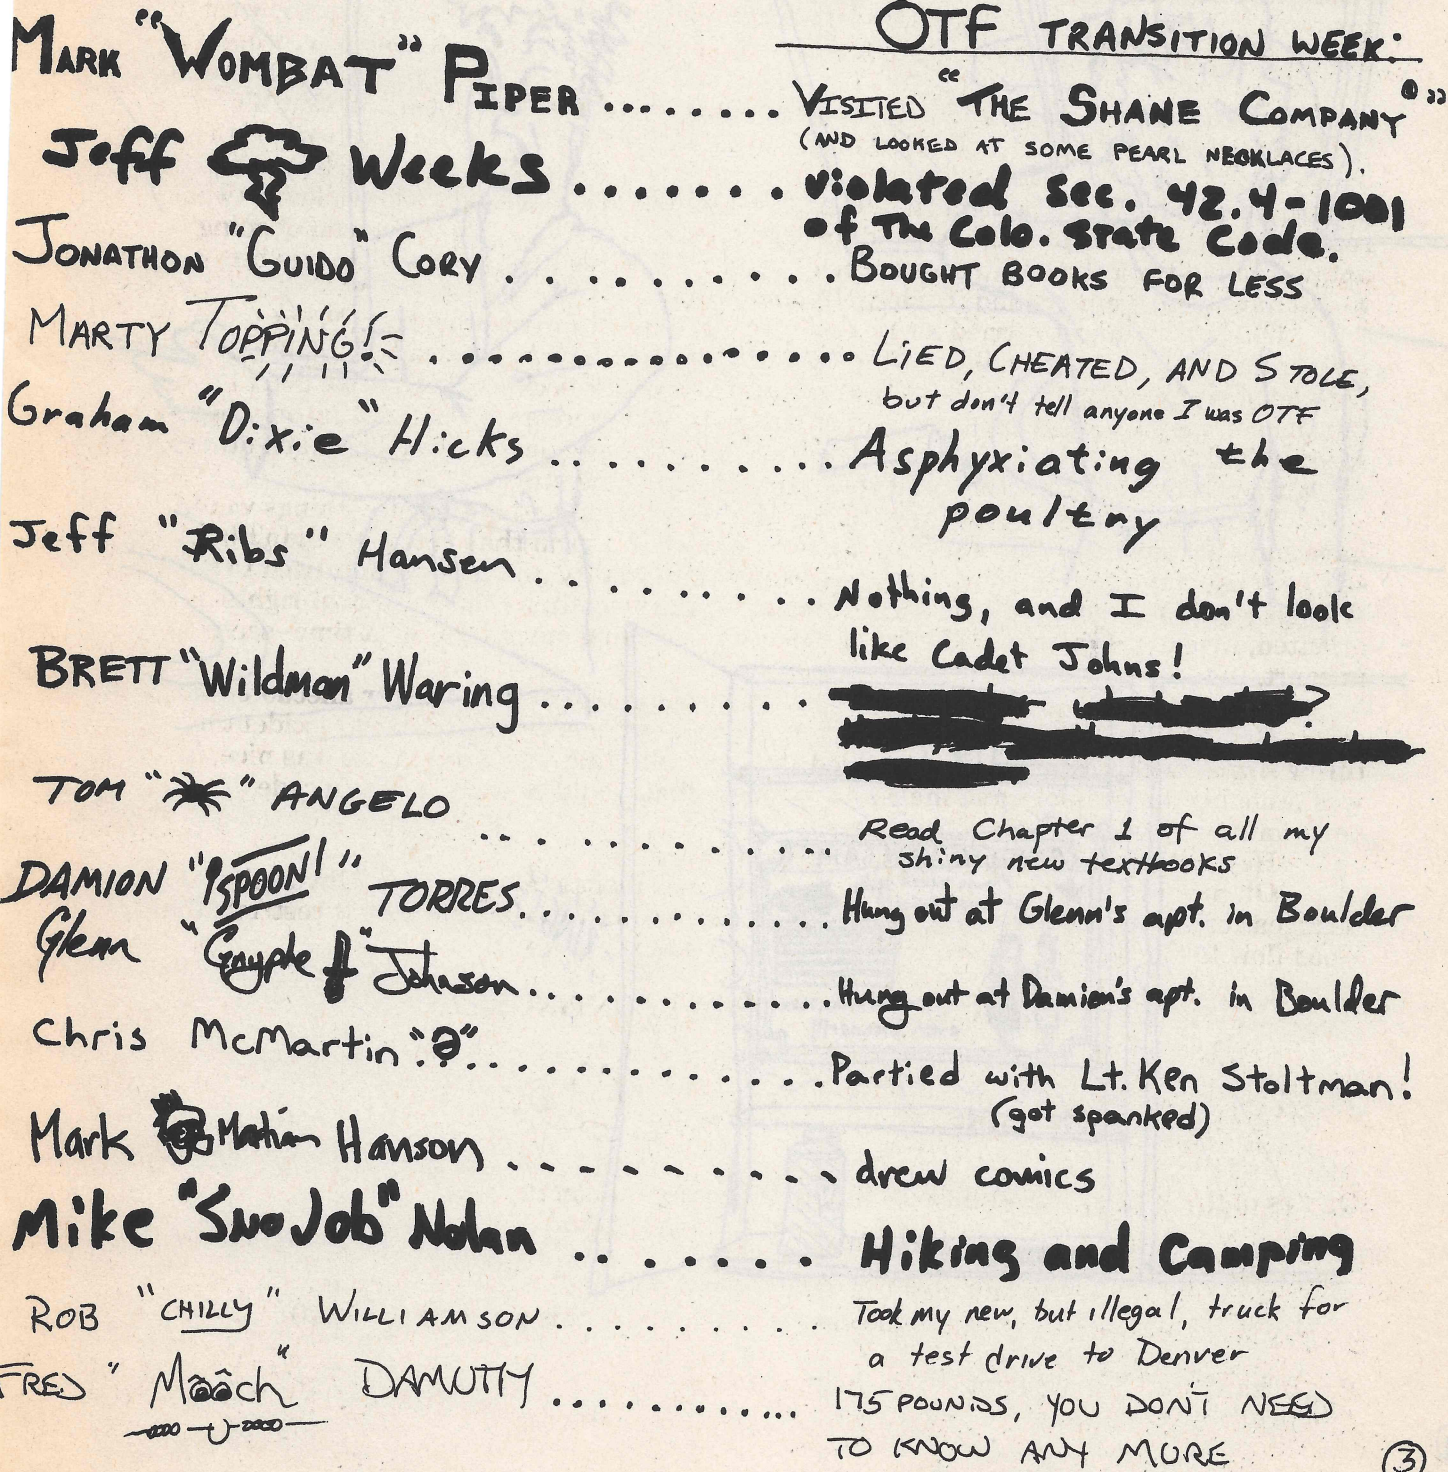 OTF TRANSITION WEEK:
MARK "WOMBAT" PIPER ........ VISITED "THE SHANE COMPANY"
(AND LOOKED AT SOME PEARL NECKLACES).
Jeff Weeks ....... violated sec. 42.4-1001
of The Colo. State Code.
JONATHON "GUIDO" CORY .......... BOUGHT BOOKS FOR LESS
MARTY TOPPING! ................ LiED, CHEATED, AND STOLE,
but don't tell anyone I was OTF
Graham "Dixie" Hicks .......... Asphyxiating the
poultry
Jeff "Ribs" Hansen ......... Nothing, and I don't look
like Cadet Johns!
BRETT "Wildman" Waring ..........
TOM " " ANGELO ............ Read Chapter 1 of all my
shiny new textbooks
DAMION "!SPOON!" TORRES ............. Hung out at Glenn's apt. in Boulder
Glenn " " Johnson ............ Hung out at Damion's apt. in Boulder
Chris McMartin " " ............... Partied with Lt. Ken Stoltman!
(got spanked)
Mark Hanson .......... drew comics
Mike "SnoJob" Nolan ....... Hiking and Camping
ROB "CHILLY" WILLIAMSON .......... Took my new, but illegal, truck for
a test drive to Denver
FRED "Mööch" DAMUTH ............ 175 POUNDS, YOU DON'T NEED
TO KNOW ANY MORE
3